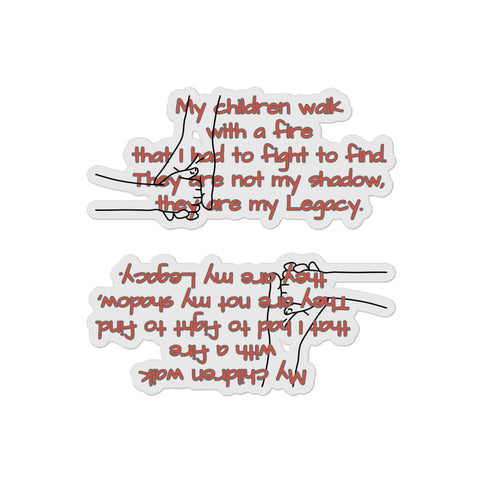 My children walk
with a fire
that I had to fight to find.
They are not my shadow,
they are my Legacy.
My children walk
with a fire
that I had to fight to find
They are not my shadow,
they are my Legacy.